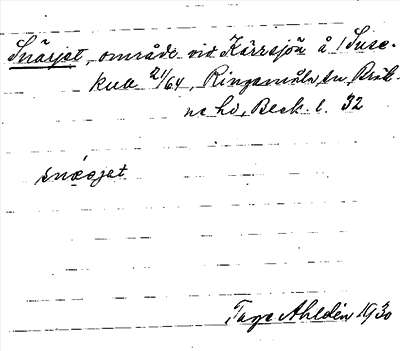 Snärjet, område vid Kärrsjön å 1 Suse-
kull 21/64, Ringamåla sn, Bräk-
ne hd, Blek. l. 32
snæ̀rjet
Tage Ahldén 1930